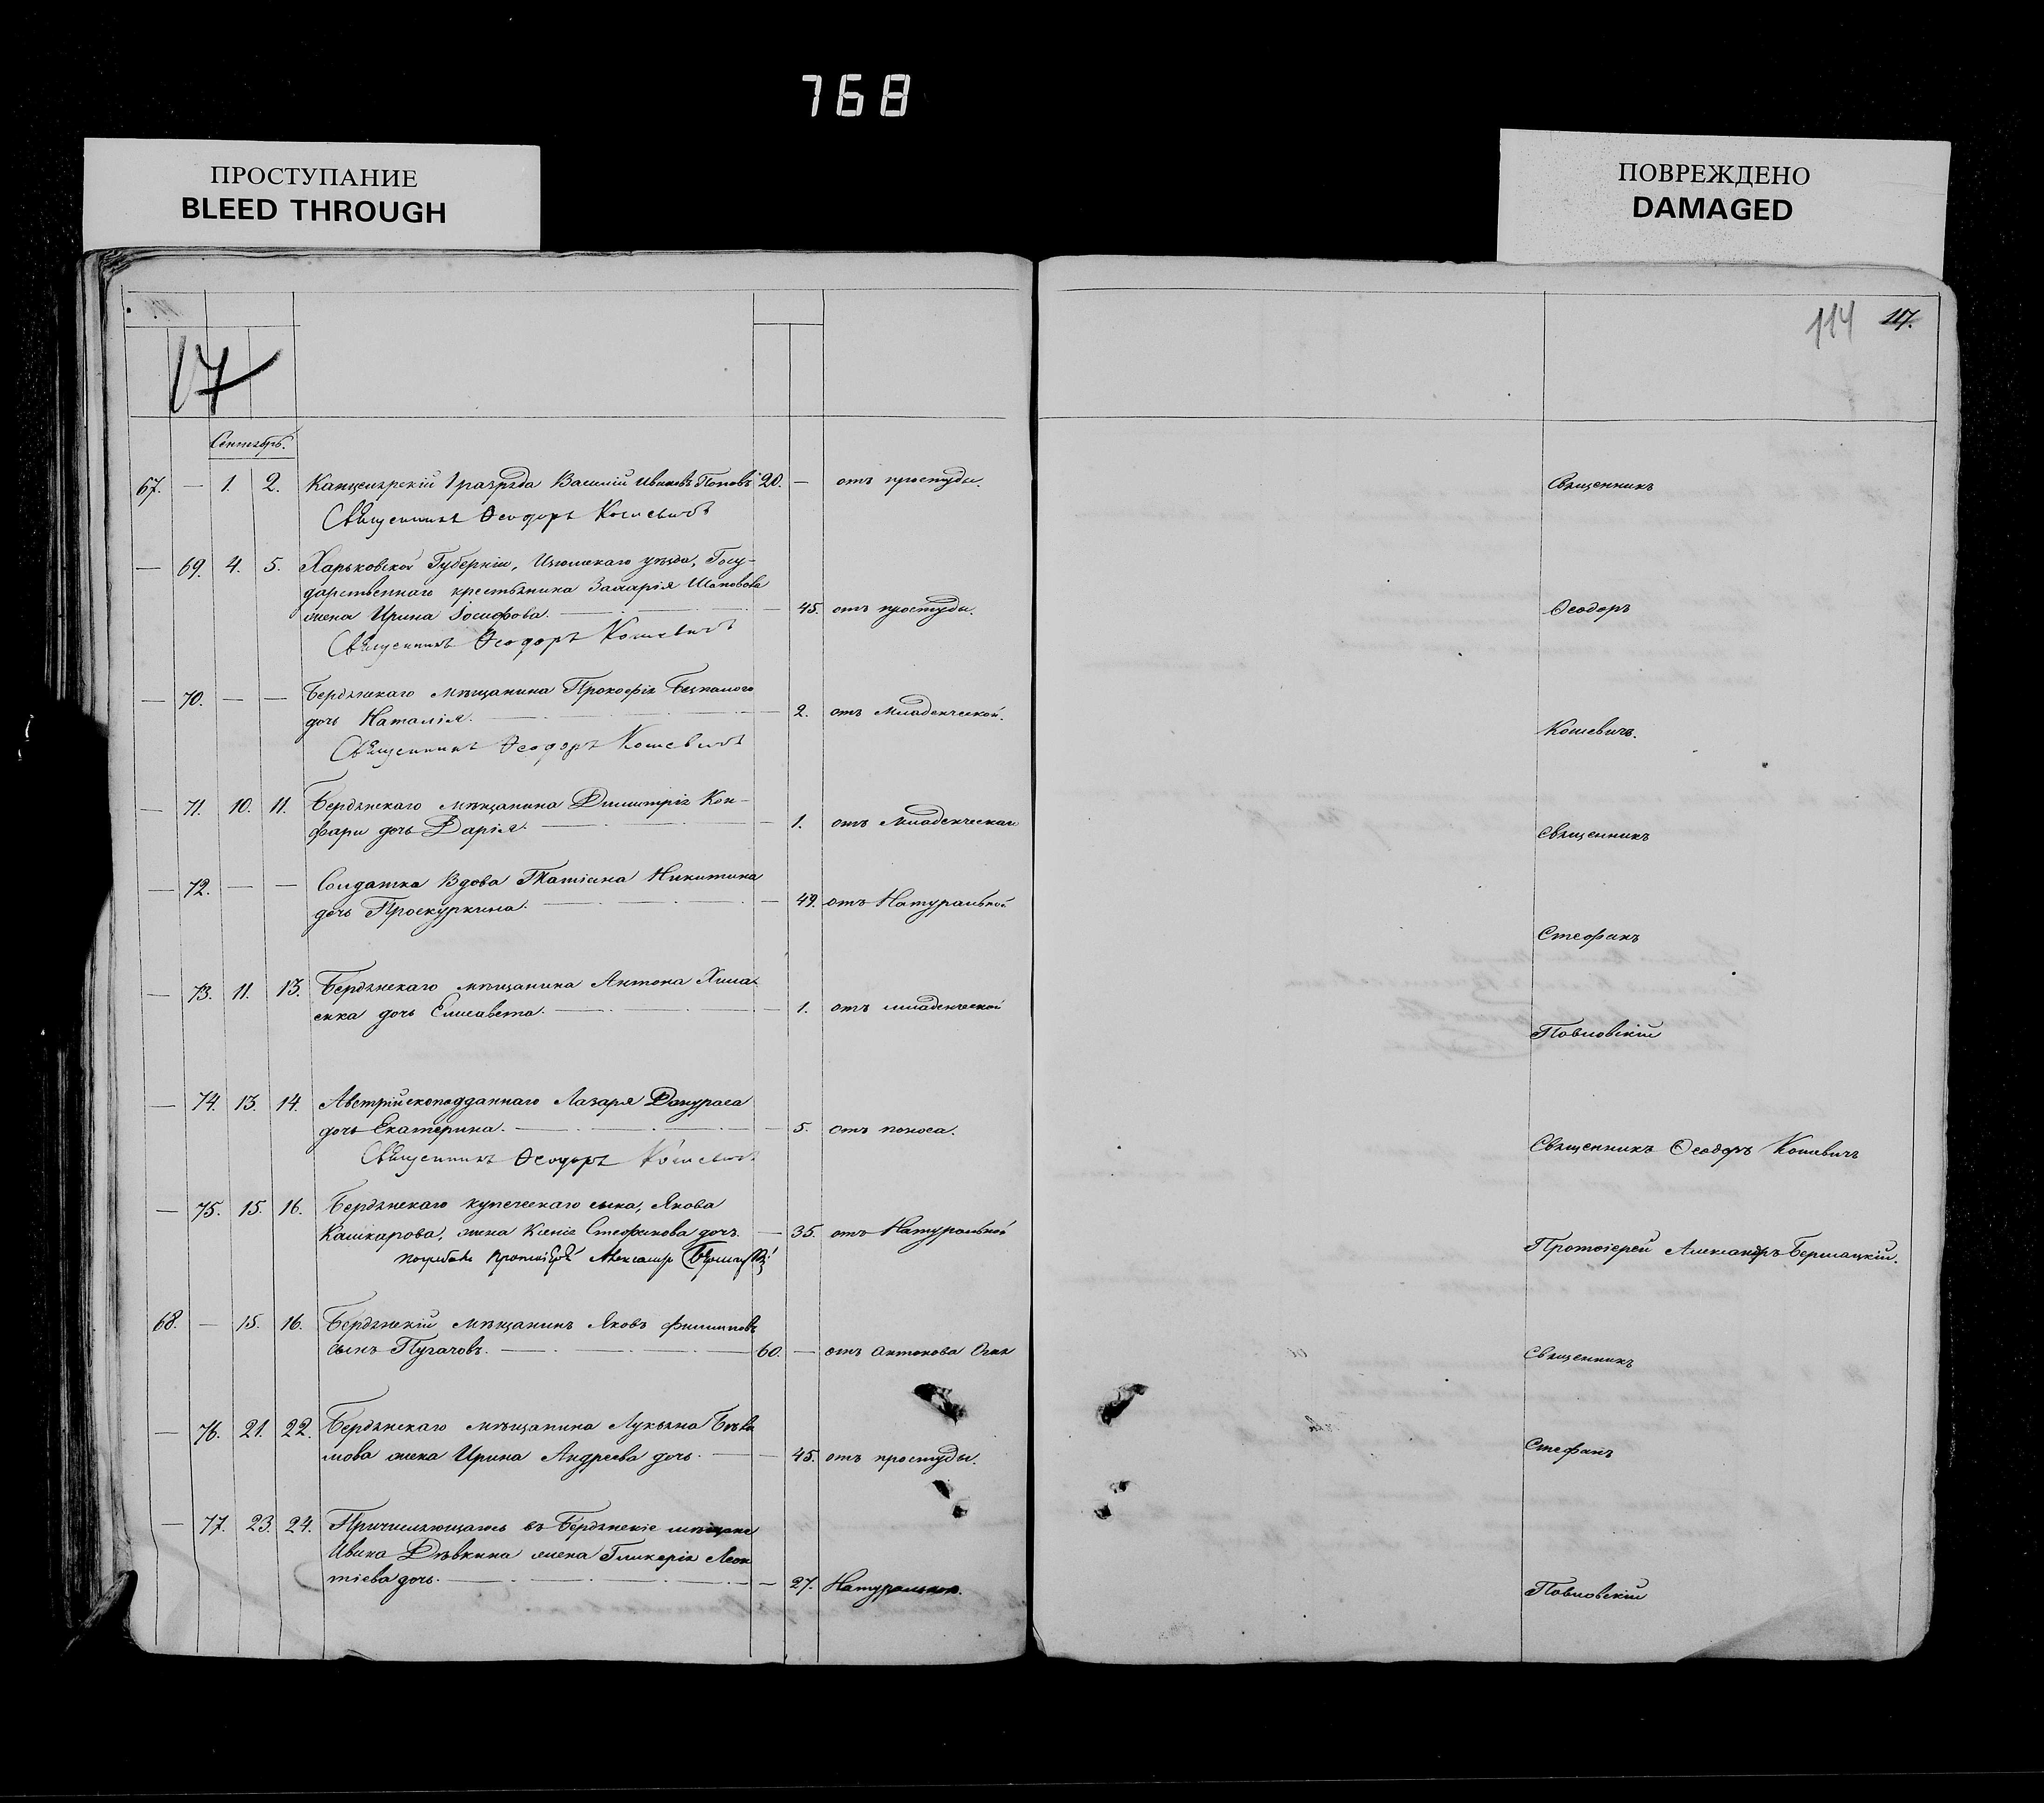 768
ПРОСТУПАНИЕ
BLEED THROUGH
ПОВРЕЖДЕНО
DAMAGED
17
114 117.
Сентябрь.
67. — 1. 2. Канцелярскій 1 разряда Василій Ивановъ Поповъ 20. — отъ простуды. Священникъ
Священникъ Ѳеодоръ Кошевичъ
— 69. 4. 5. Харьковской Губерніи, Изюмскаго уѣзда, Госу-
дарственнаго крестьянина Захарія Шаповала
жена Ирина Іосифова. — 45. отъ простуды. Ѳеодоръ
Священникъ Ѳеодоръ Кошевичъ
— 70. — — Бердянскаго мѣщанина Прокофія
дочь Наталія. — 2. отъ Младенческой. Кошевичъ.
Священникъ Ѳеодоръ Кошевичъ
— 71. 10. 11. Бердянскаго мѣщанина Димитрія Кон-
фари дочь Дарія. — 1. отъ Младенческой Священникъ
— 72. — — Солдатка Вдова Татіана Никитина
дочь Проскуркина. — 49. отъ Натуральной Стефанъ
— 73. 11. 13. Бердянскаго мѣщанина Антона
енка дочь Елисавета. — 1. отъ младенческой Павловскій
— 74. 13. 14. Австрійскоподданнаго Лазаря
дочь Екатерина. — 5. отъ поноса.
Священникъ Ѳеодоръ Кошевичъ Священникъ Ѳеодоръ Кошевичъ
— 75. 15. 16. Бердянскаго купеческаго сына, Якова
Кашкарова, жена Ксенія Стефанова дочь. — 35. отъ Натуральной Протоіерей Александръ Бершацкій.
Протоіерей Александръ
68. — 15. 16. Бердянскій мѣщанинъ Яковъ Филипповъ
сынъ Пугачовъ. — 60. — отъ Антонова Огня Священникъ
— 76. 21. 22. Бердянскаго мѣщанина Лукьяна
мова жена Ирина Андреева дочь. — 45. отъ простуды. Стефанъ
— 77. 23. 24. Причисляющагося въ Бердянскіе мѣщане
Ивана Дѣвкина жена Гликерія Леон
тіева дочь. — 27. Натуральной. Павловскій